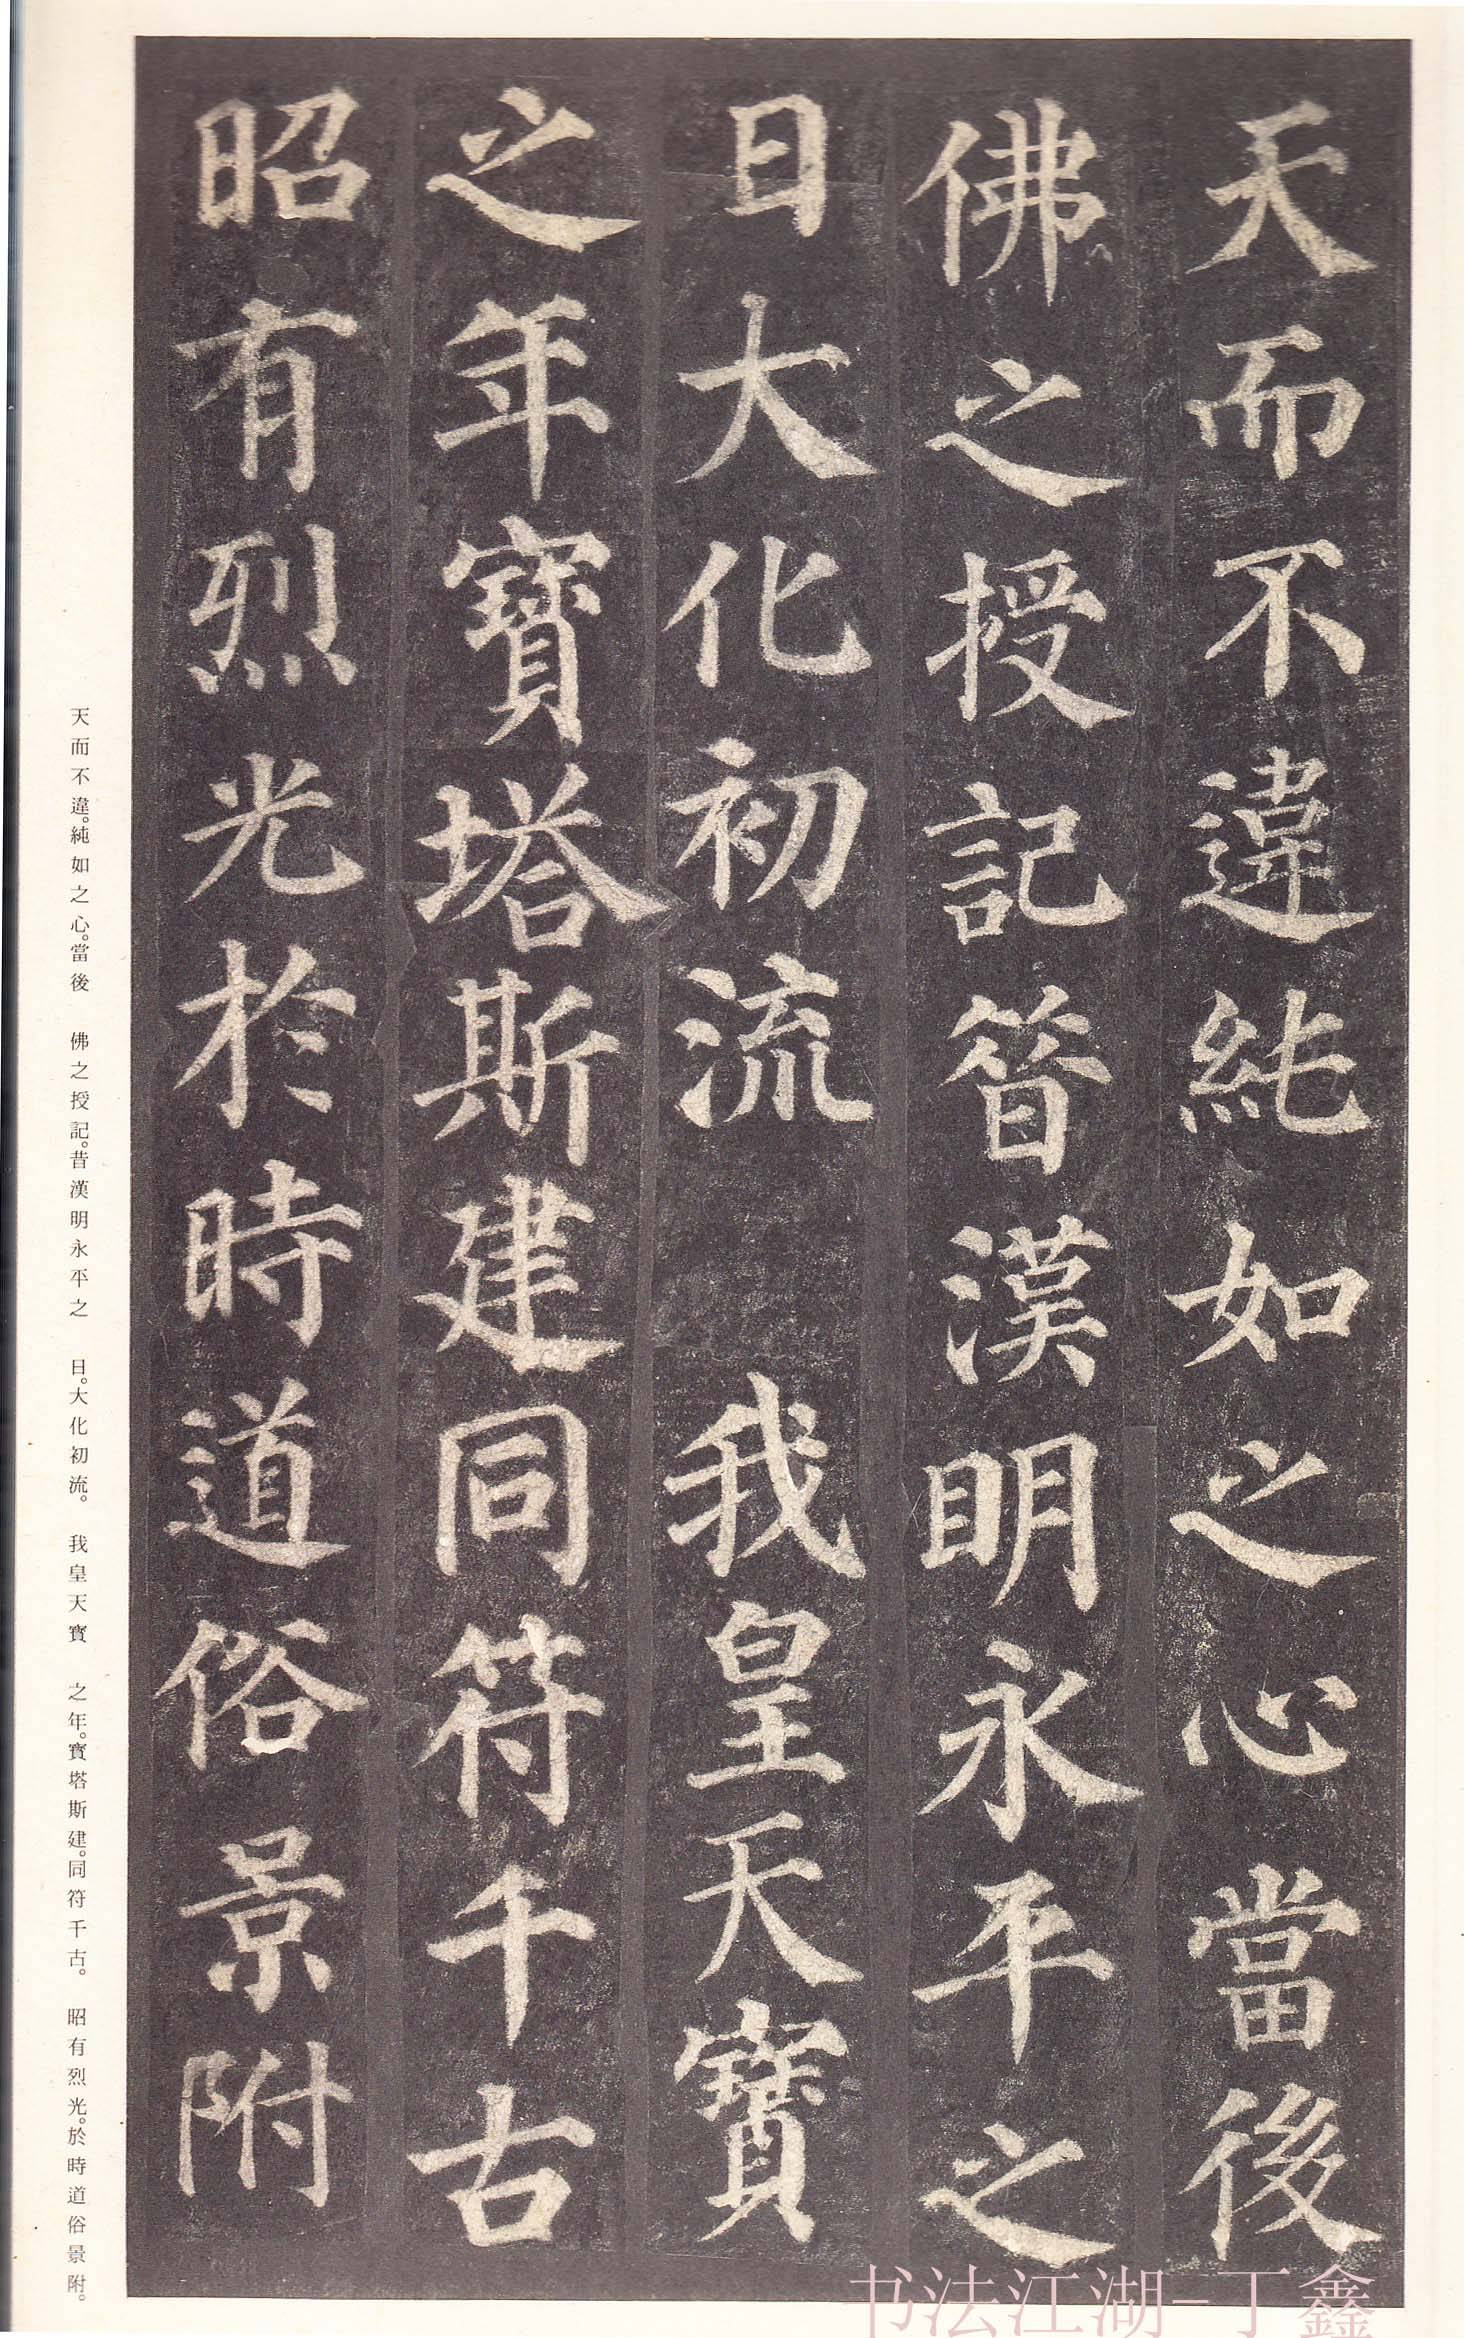 天而不違純如之心當後
佛之授記昔漢明永平之
日大化初流　我皇天寶
之年寶塔斯建同符千古
昭有烈光於時道俗景附
天而不違。純如之心。當後　佛之授記。昔漢明永平之　日。大化初流。　我皇天寶　之年。寶塔斯建。同符千古。　昭有烈光。於時道俗景附。
书法江湖-丁鑫